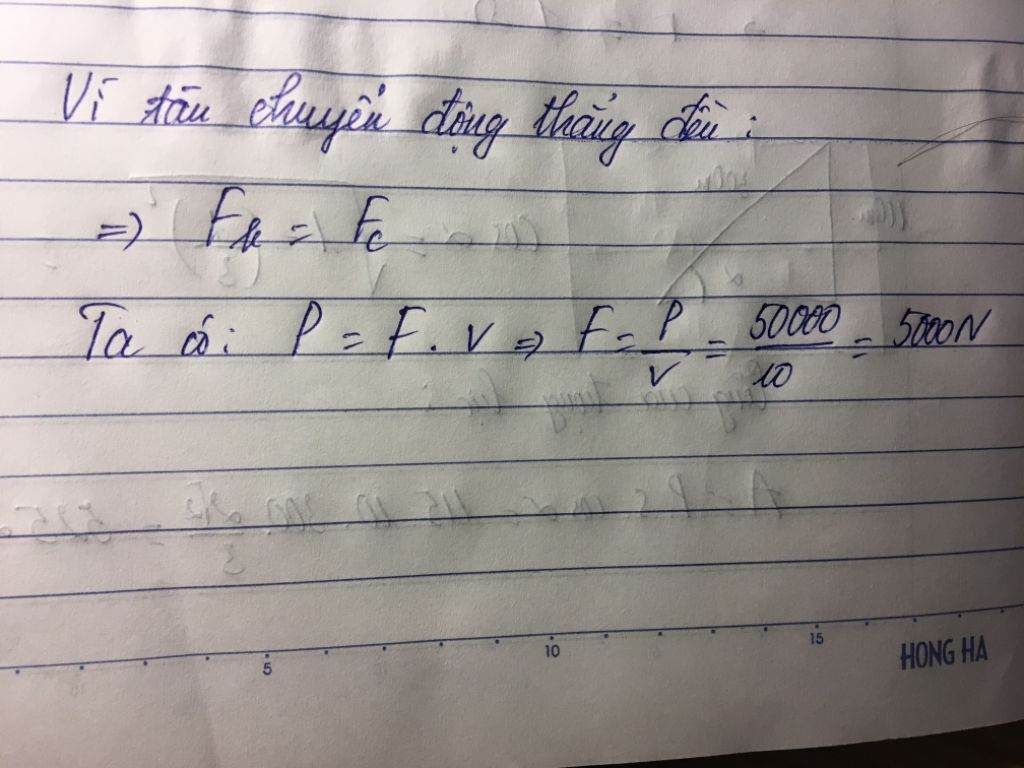 Vì tàu chuyển động thẳng đều :
=> Fk = Fc
Ta có: P = F . v => F = P/v = 50000/10 = 5000N
5 10 15
HONG HA